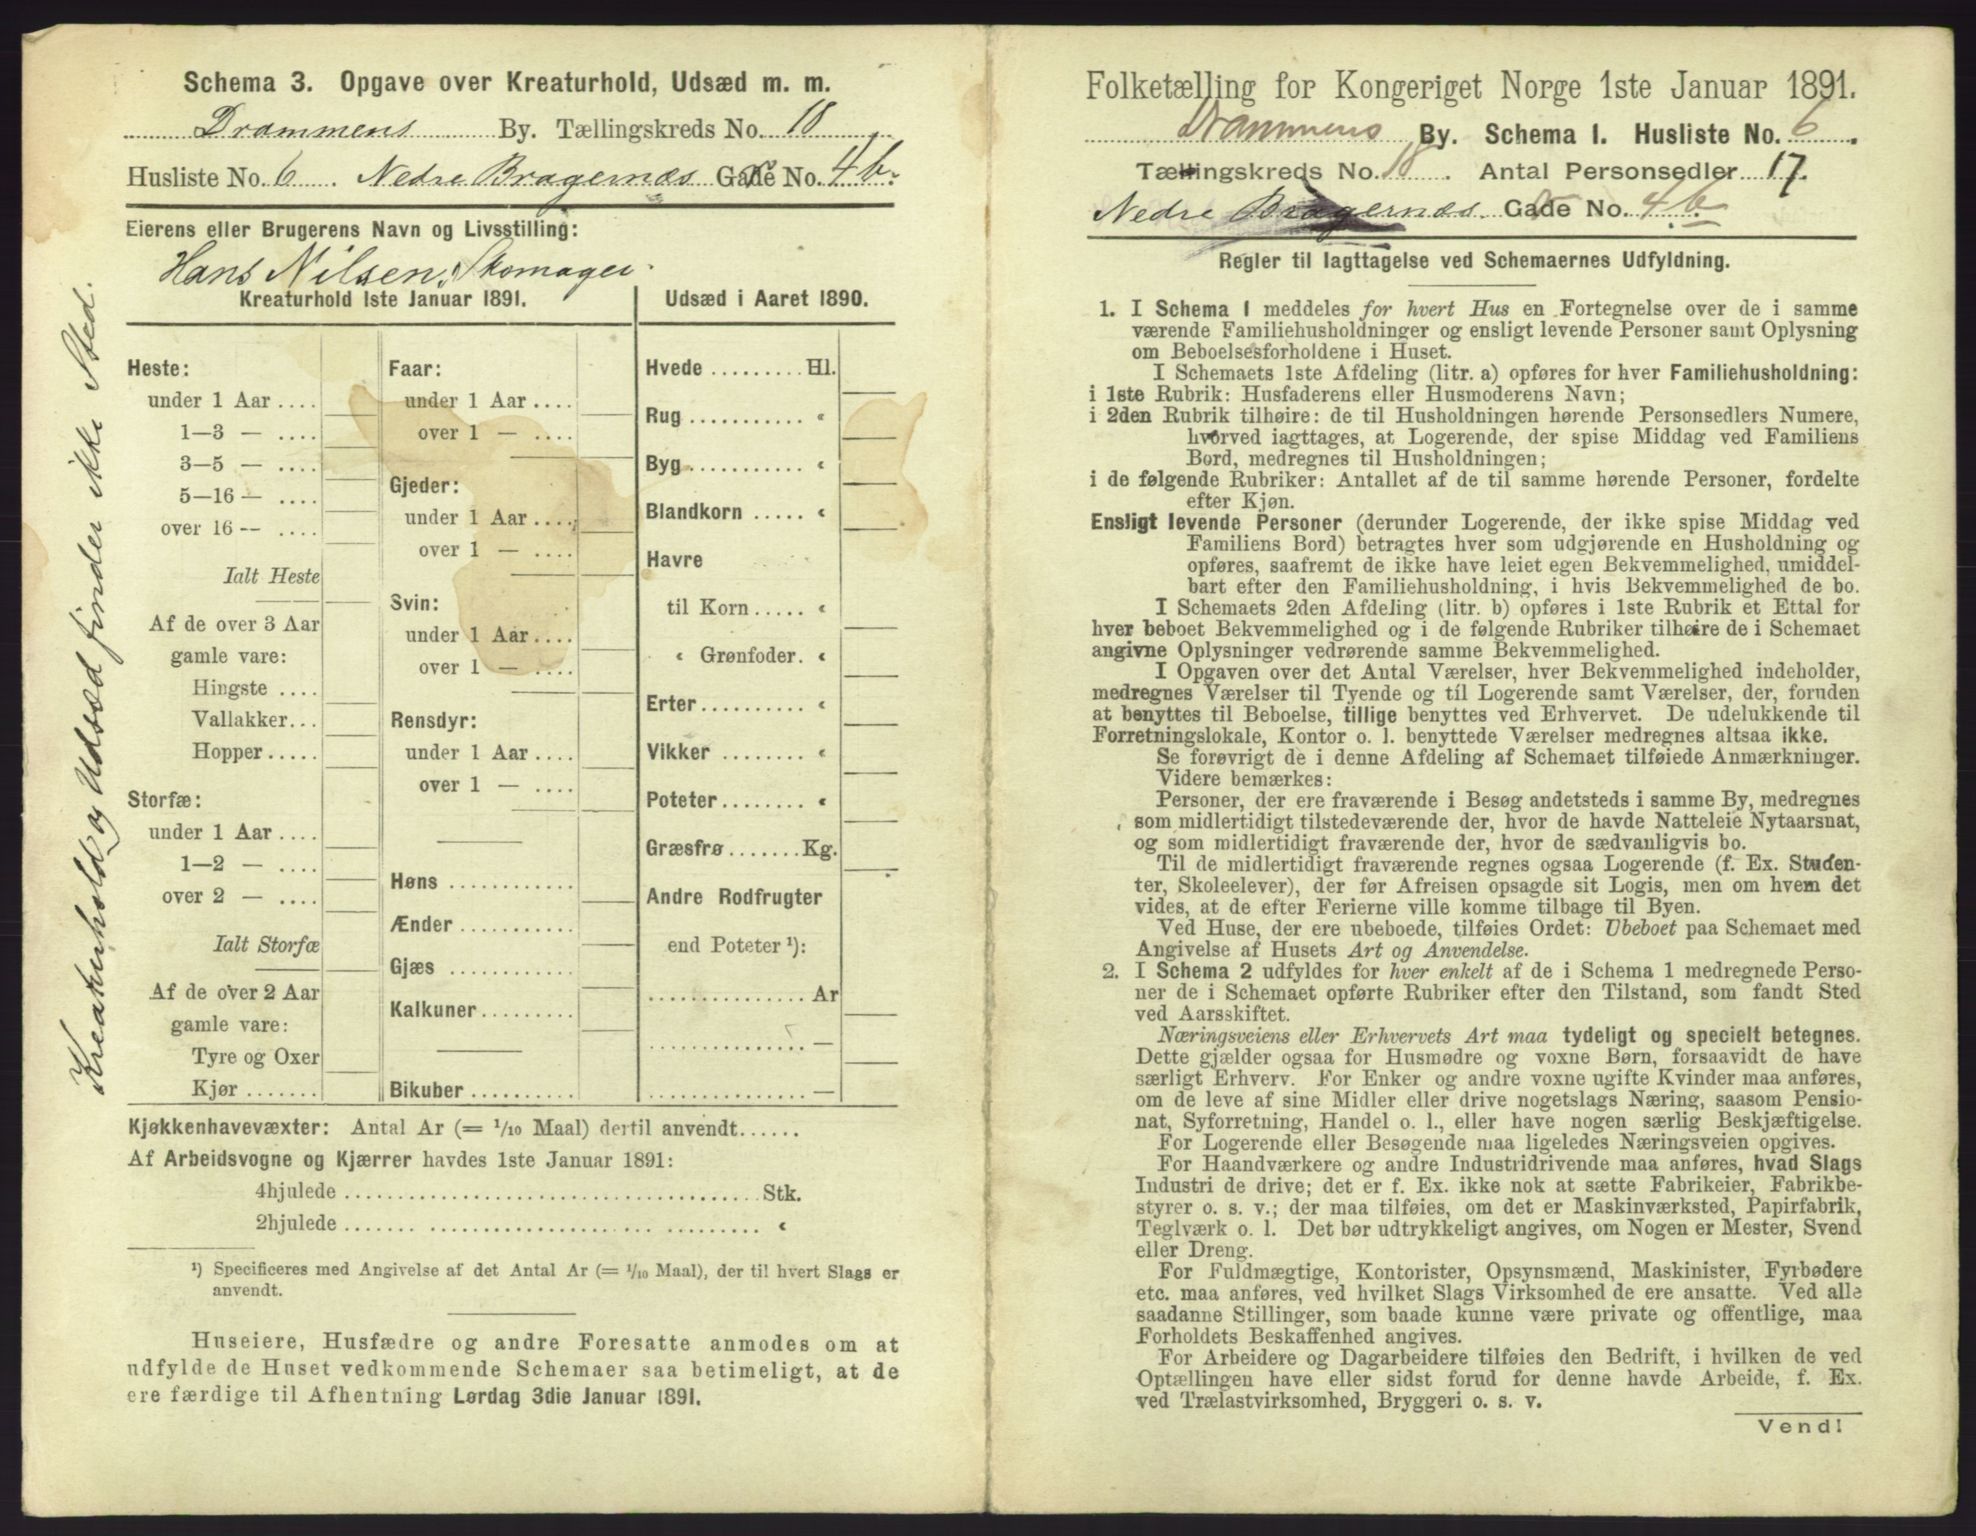 Schema 3. Opgave over Kreaturhold, Udsæd m. m.
Drammens By. Tællingskreds No. 18
Husliste No. 6. Nedre Bragernæs Gade No. 4b.
Eierens eller Brugerens Navn og Livsstilling:
Hans Nilsen, Skomager.
Kreaturhold 1ste Januar 1891.
Heste:
under 1 Aar ....
1—3 — ....
3—5 — ....
5—16 — ....
over 16 — ....
Ialt Heste
Af de over 3 Aar
gamle vare:
Hingste ....
Vallakker...
Hopper.....
Storfæ:
under 1 Aar ....
1—2 — ....
over 2 — ....
Ialt Storfæ
Af de over 2 Aar
gamle vare:
Tyre og Oxer
Kjør .......
Faar:
under 1 Aar ....
over 1 — ....
Gjeder:
under 1 Aar ....
over 1 — ....
Svin:
under 1 Aar ....
over 1 — ....
Rensdyr:
under 1 Aar ....
over 1 — ....
Høns ...........
Ænder ...........
Gjæs ...........
Kalkuner.........
Bikuber ..........
Udsæd i Aaret 1890.
Hvede ......... Hl.
Rug ........... «
Byg........... «
Blandkorn ..... «
Havre
til Korn ..... «
« Grønfoder. «
Erter.......... «
Vikker ........ «
Poteter........ «
Græsfrø ....... Kg.
Andre Rodfrugter
end Poteter ¹):
............... Ar
............... —
............... —
Kreaturhold og Udsæd finder ikke Sted.
Kjøkkenhavevæxter: Antal Ar (= 1/10 Maal) dertil anvendt......
Af Arbeidsvogne og Kjærrer havdes 1ste Januar 1891:
4hjulede ........................................ Stk.
2hjulede ........................................ «
¹) Specificeres med Angivelse af det Antal Ar (= 1/10 Maal), der til hvert Slags er
anvendt.
Huseiere, Husfædre og andre Foresatte anmodes om at
udfylde de Huset vedkommende Schemaer saa betimeligt, at de
ere færdige til Afhentning Lørdag 3die Januar 1891.
Folketælling for Kongeriget Norge 1ste Januar 1891.
Drammens By. Schema I. Husliste No. 6.
Tællingskreds No. 18. Antal Personsedler 17.
Nedre Bragernæs Gade No. 4b.
Regler til Iagttagelse ved Schemaernes Udfyldning.
1. I Schema 1 meddeles for hvert Hus en Fortegnelse over de i samme
værende Familiehusholdninger og ensligt levende Personer samt Oplysning
om Beboelsesforholdene i Huset.
I Schemaets 1ste Afdeling (litr. a) opføres for hver Familiehusholdning:
i 1ste Rubrik: Husfaderens eller Husmoderens Navn;
i 2den Rubrik tilhøire: de til Husholdningen hørende Personsedlers Numere,
hvorved iagttages, at Logerende, der spise Middag ved Familiens
Bord, medregnes til Husholdningen;
i de følgende Rubriker: Antallet af de til samme hørende Personer, fordelte
efter Kjøn.
Ensligt levende Personer (derunder Logerende, der ikke spise Middag ved
Familiens Bord) betragtes hver som udgjørende en Husholdning og
opføres, saafremt de ikke have leiet egen Bekvemmelighed, umiddel-
bart efter den Familiehusholdning, i hvis Bekvemmelighed de bo.
I Schemaets 2den Afdeling (litr. b) opføres i 1ste Rubrik et Ettal for
hver beboet Bekvemmelighed og i de følgende Rubriker tilhøire de i Schemaet
angivne Oplysninger vedrørende samme Bekvemmelighed.
I Opgaven over det Antal Værelser, hver Bekvemmelighed indeholder,
medregnes Værelser til Tyende og til Logerende samt Værelser, der, foruden
at benyttes til Beboelse, tillige benyttes ved Erhvervet. De udelukkende til
Forretningslokale, Kontor o. l. benyttede Værelser medregnes altsaa ikke.
Se forøvrigt de i denne Afdeling af Schemaet tilføiede Anmærkninger.
Videre bemærkes:
Personer, der ere fraværende i Besøg andetsteds i samme By, medregnes
som midlertidigt tilstedeværende der, hvor de havde Natteleie Nytaarsnat,
og som midlertidigt fraværende der, hvor de sædvanligvis bo.
Til de midlertidigt fraværende regnes ogsaa Logerende (f. Ex. Studen-
ter, Skoleelever), der før Afreisen opsagde sit Logis, men om hvem det
vides, at de efter Ferierne ville komme tilbage til Byen.
Ved Huse, der ere ubeboede, tilføies Ordet: Ubeboet paa Schemaet med
Angivelse af Husets Art og Anvendelse.
2. I Schema 2 udfyldes for hver enkelt af de i Schema 1 medregnede Perso-
ner de i Schemaet opførte Rubriker efter den Tilstand, som fandt Sted
ved Aarsskiftet.
Næringsveiens eller Erhvervets Art maa tydeligt og specielt betegnes.
Dette gjælder ogsaa for Husmødre og voxne Børn, forsaavidt de have
særligt Erhverv. For Enker og andre voxne ugifte Kvinder maa anføres,
om de leve af sine Midler eller drive nogetslags Næring, saasom Pensio-
nat, Syforretning, Handel o. l., eller have nogen særlig Beskjæftigelse.
For Logerende eller Besøgende maa ligeledes Næringsveien opgives.
For Haandværkere og andre Industridrivende maa anføres, hvad Slags
Industri de drive; det er f. Ex. ikke nok at sætte Fabrikeier, Fabrikbe-
styrer o. s. v.; der maa tilføies, om det er Maskinværksted, Papirfabrik,
Teglværk o. l. Det bør udtrykkeligt angives, om Nogen er Mester, Svend
eller Dreng.
For Fuldmægtige, Kontorister, Opsynsmænd, Maskinister, Fyrbødere
etc. maa anføres, ved hvilket Slags Virksomhed de ere ansatte. Ved alle
saadanne Stillinger, som baade kunne være private og offentlige, maa
Forholdets Beskaffenhed angives.
For Arbeidere og Dagarbeidere tilføies den Bedrift, i hvilken de ved
Optællingen have eller sidst forud for denne havde Arbeide, f. Ex.
ved Trælastvirksomhed, Bryggeri o. s. v.
Vend!